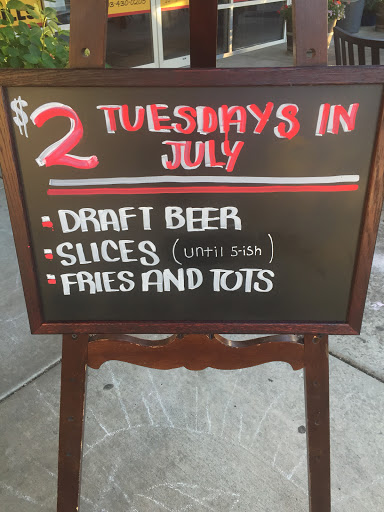 $2 TUESDAYS IN
JULY
DRAFT BEER
SLICES (until 5-ish)
FRIES AND TOTS